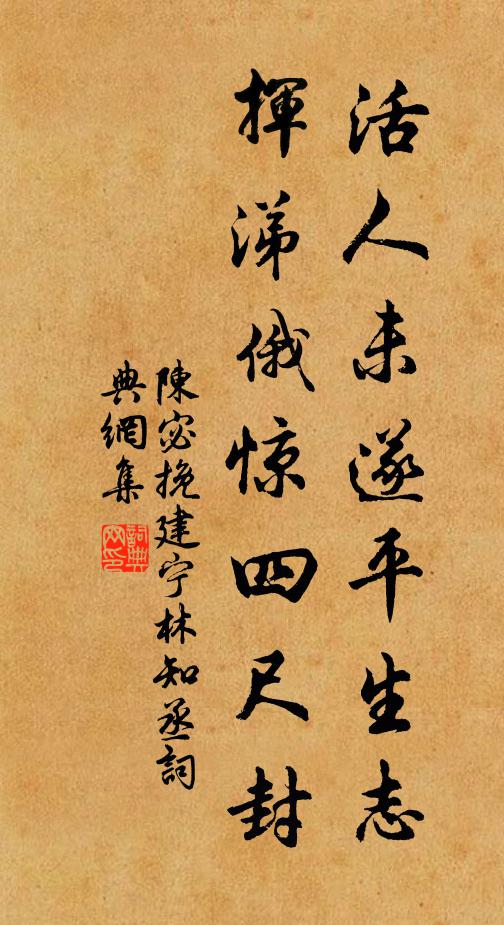 活人未遂平生志
揮涕俄惊四尺封
陳宓挽建宁林知丞詞
典網集
詞典网印